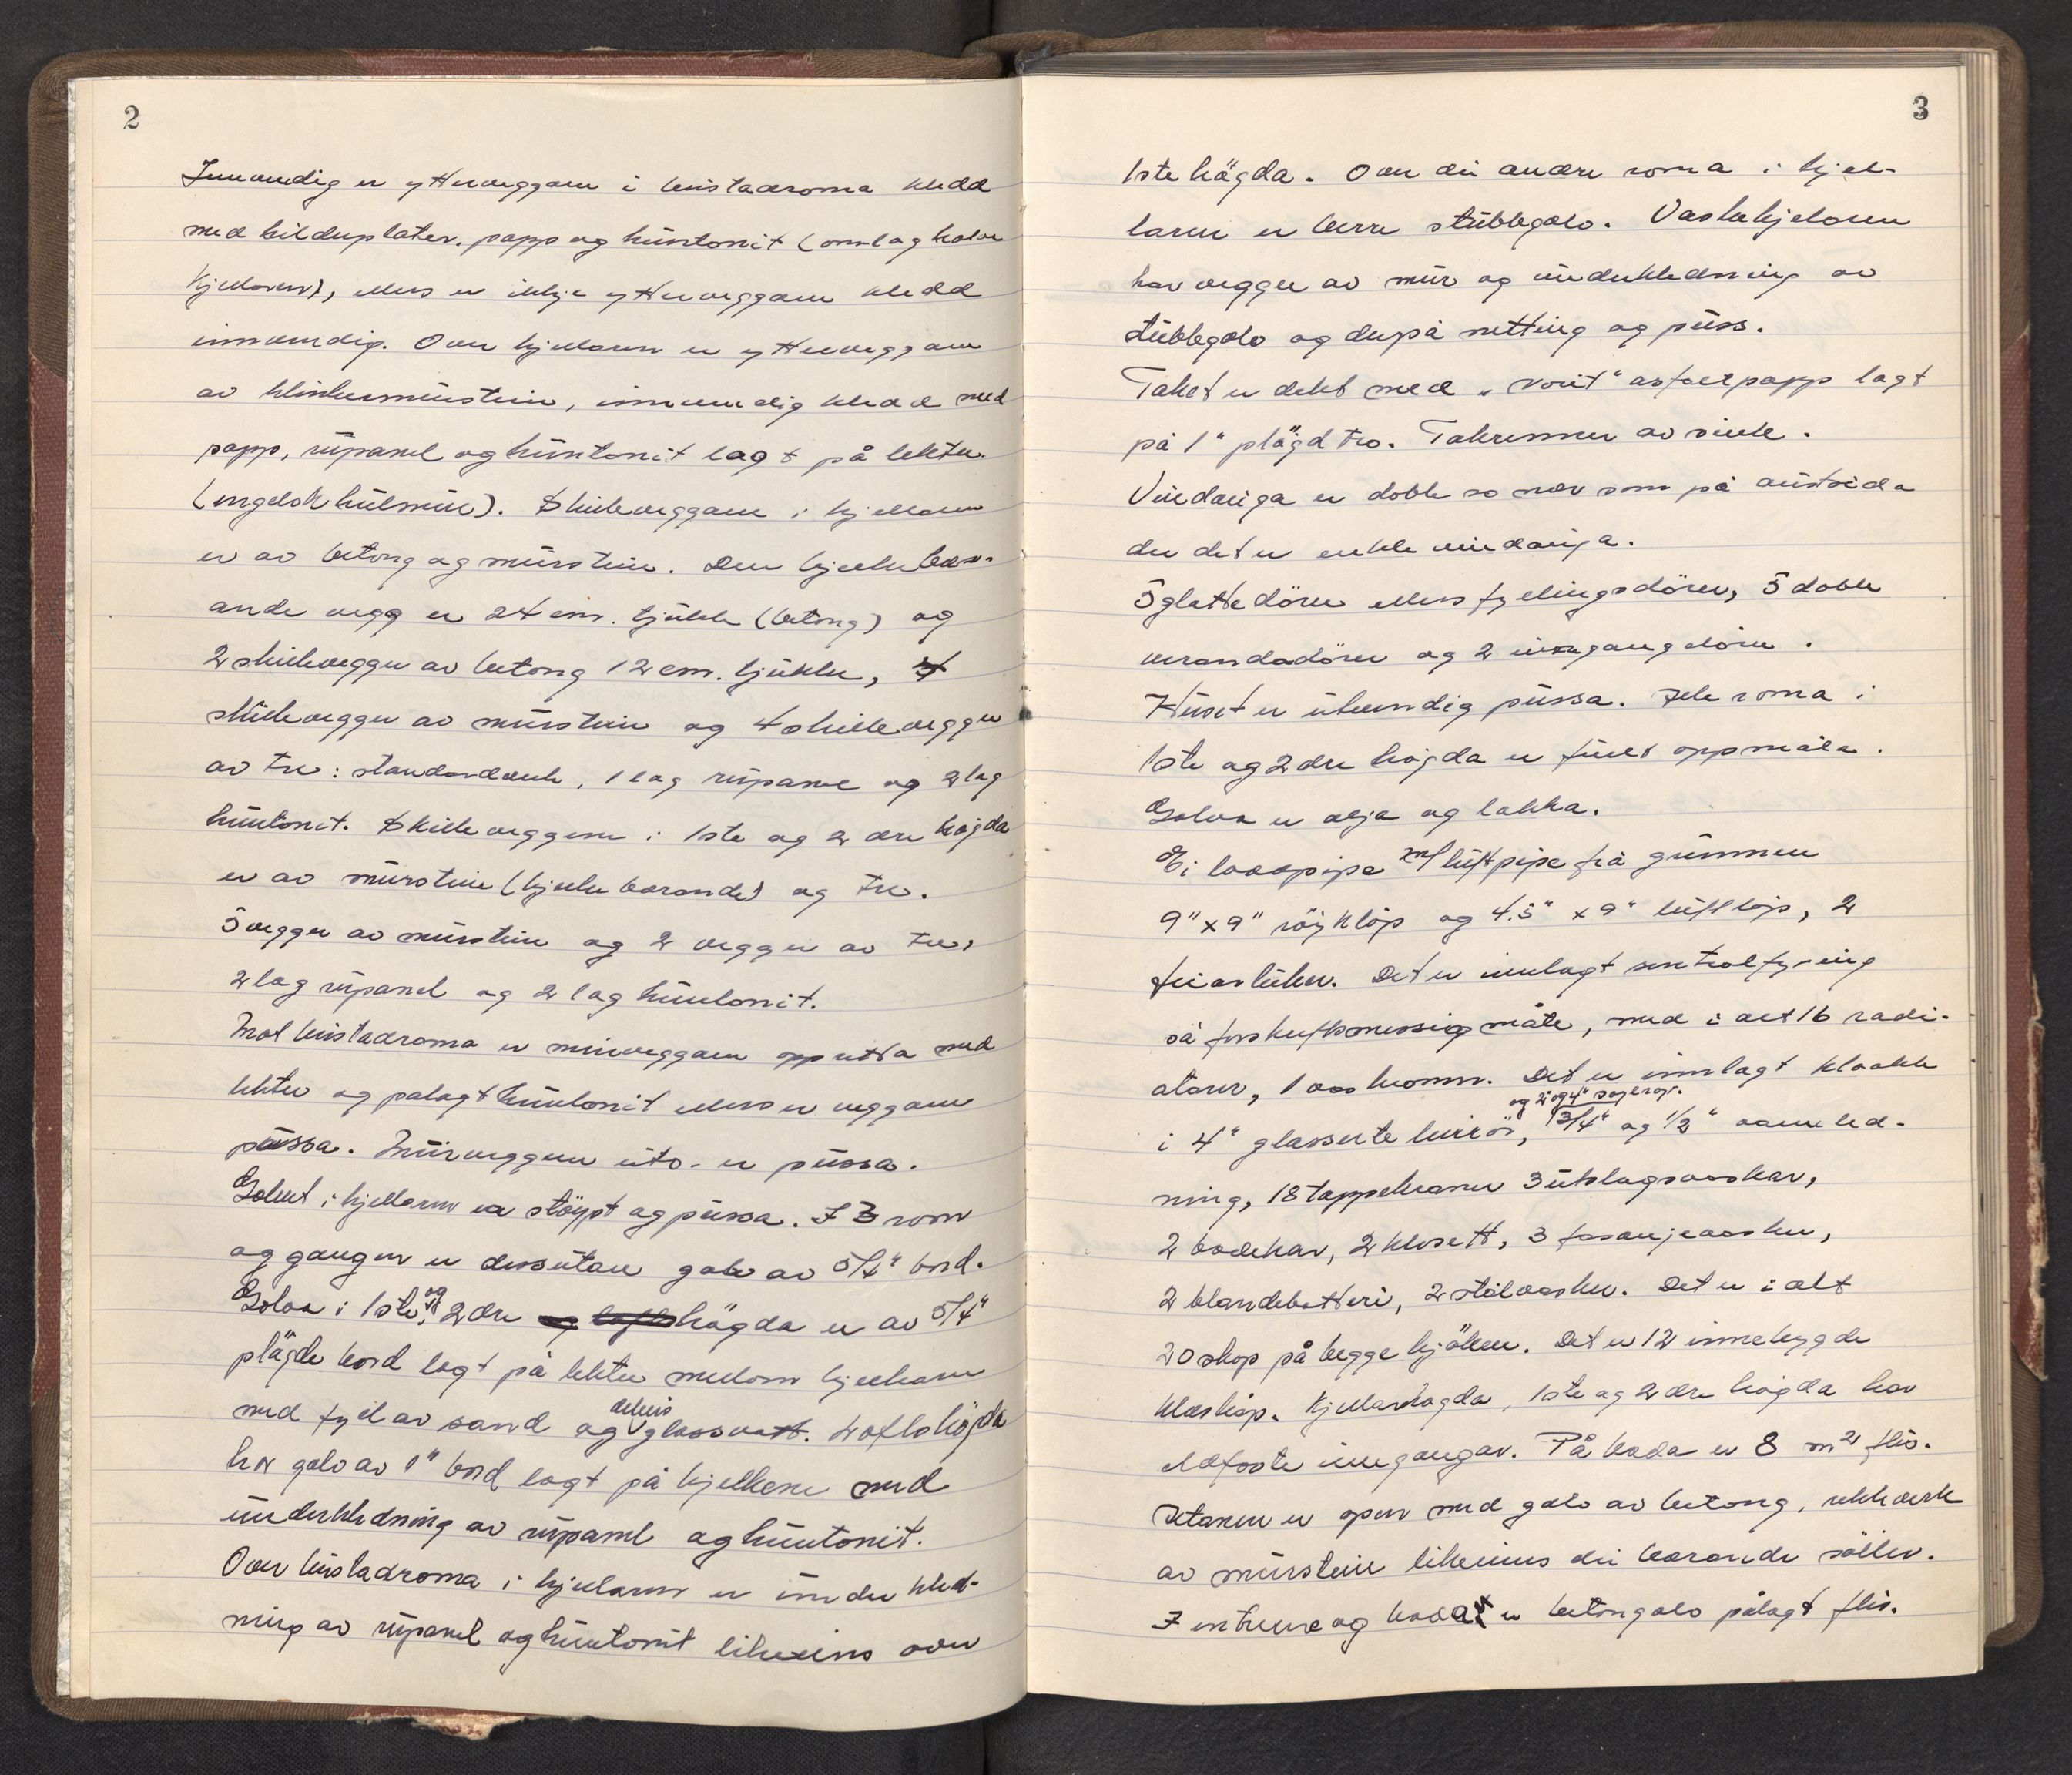 2
Innvendig er ytterveggane i bustadroma kledd
med bilduplater, papp og huntonit (omlag halve
kjellaren), elles er ikkje ytterveggane kledd
innvendig. Over kjellaren er ytterveggane
av klinkermurstein, innvendig kledd med
papp, rupanel og huntonit lagt på lekter
(engelsk hulmur). Skilleveggane i kjellaren
er av betong og murstein. Den bjelkebær-
ande vegg er 24 cm. tjukk (betong) og
2 skilleveggar av betong 12 cm. tjukke, 4
skilleveggar av murstein og 4 skilleveggar
av tre: standardverk, 1 lag rupanel og 2 lag
huntonit. Skilleveggene i 1ste og 2 dre høgda
er av murstein (bjelkebærande) og tre.
5 vegger av murstein og 2 vegger av tre,
2 lag rupanel og 2 lag huntonit.
Mot bustadroma er murveggane opp retta med
lekter og pålagt huntonit elles er veggane
pussa. Murveggene utv. er pussa.
Golvet i kjellaren er støypt og pussa. I 3 rom
og gangen er dessutan golv av 5/4" bord.
Golva i 1ste og 2 dre og lofts høgda er av 5/4"
pløgde bord lagt på lekter mellom bjelkane
med fyll av sand og delvis glassvatt. Loftshøgda
har golv av 1" bord lagt på bjelkene med
underkledning av rupanel og huntonit.
Over bustadroma i kjellaren er underkled-
ning av rupanel og huntonit likeeins over
3
1ste høgda. Over dei andre roma i kjel-
laren er berre stubbgolv. Vaskekjellaren
har vegger av mur og underkledning av
stubbgolv og derpå netting og puss.
Taket er dekt med "Voni" asfaltpapp lagt
på 1" pløgd tro. Takrenner av sink.
Vindauga er doble so nær som på austsida
der det er enkle vindauga.
5 glatte dører elles fyllingsdører, 5 doble
verandadører og 2 inngangsdører.
Huset er utvendig pussa. Alle roma i
1ste og 2 dre høgda er fullt oppmåla.
Golva er olja og lakka.
Ei løpspipe m/ luftpipe frå grunnen
9" x 9" røykløp og 4.5" x 9" luftløp, 2
feiarluker. Det er innlagt sentralfyring
på forskriftsmessig måte, med i alt 16 radi-
atorer, 1 vaskeomn. Det er innlagt kloakk
og 2" og 4" søylerøyr.
i 4" glasserte leirrør, 3/4" og 1/2" vassled-
ning, 18 tappekraner 3 utslagsvaskar,
2 badekar, 2 klosett, 3 fasanjevasker,
2 blandebatteri, 2 stålvasker. Det er i alt
20 skap på begge kjøkken. Det er 12 innebygde
kleskåp. Kjellarhøgda, 1ste og 2 dre høgda har
eldfaste inngangar. På bada er 8 m2 flis.
Altanen er open med golv av betong, rekkverk
av murstein likeeins dei bærande søyler.
I entreene og bada er betongolv pålagt flis.